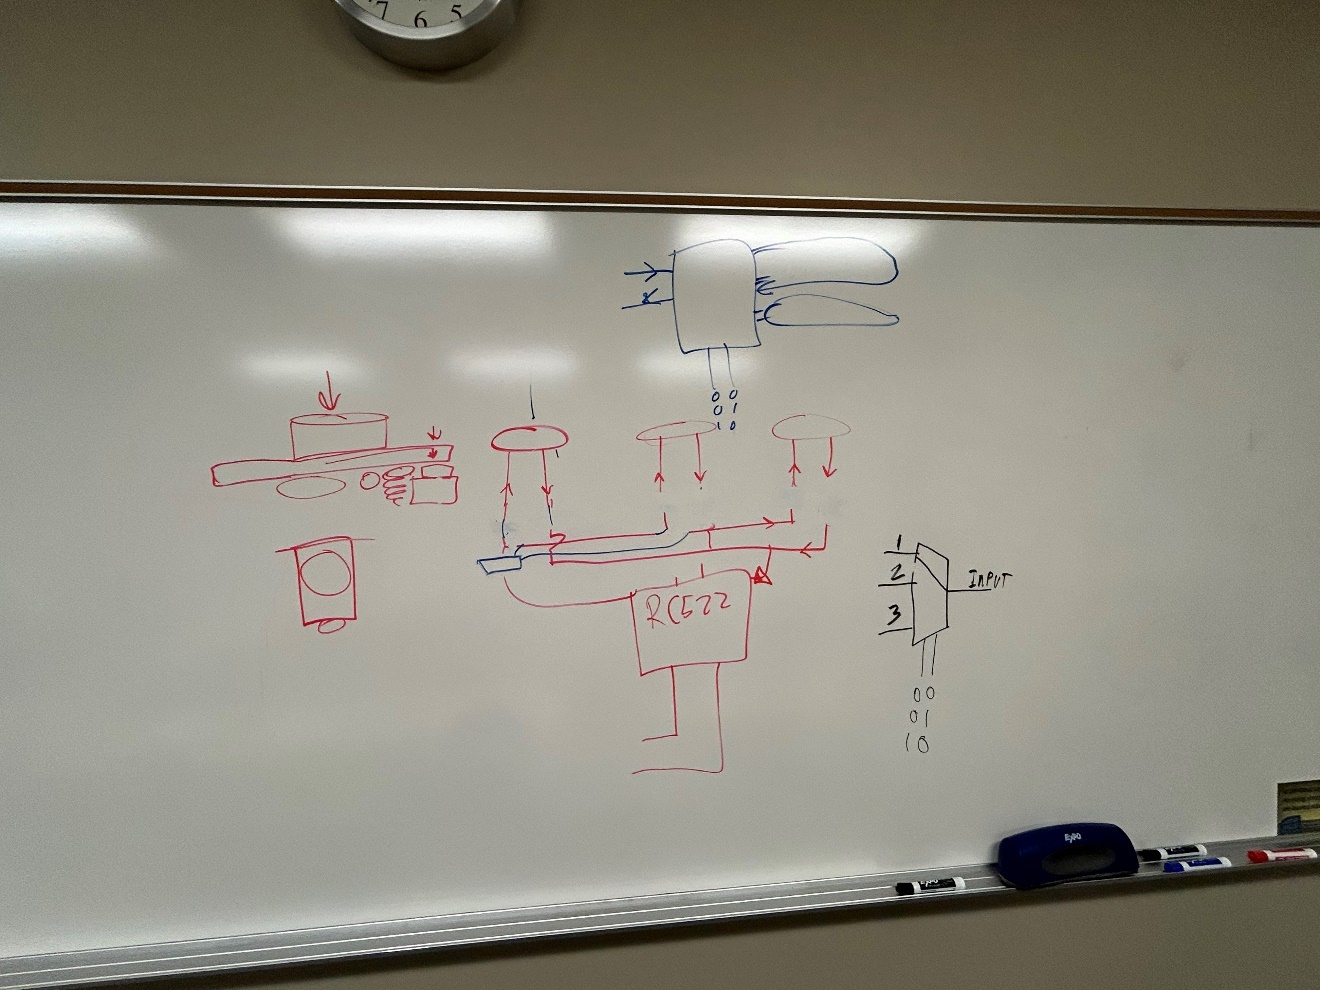 7 6 5
0 0
0 1
1 0
RC522
1
2
INPUT
3
00
01
10
EXPO